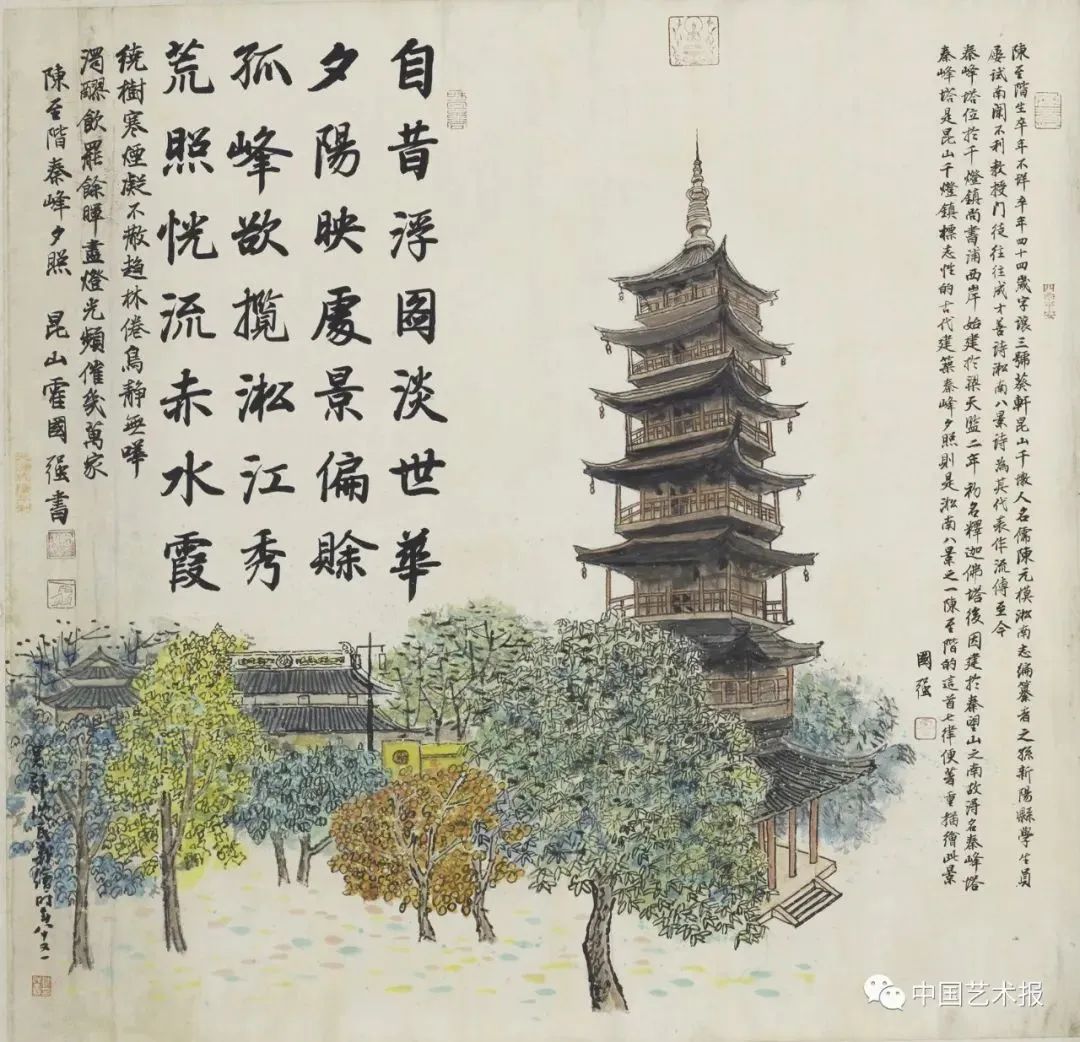 陳至階生卒年不詳卒年四十四歲字讓三號葵軒昆山千墩人名儒陳元模淞南志編纂者之孫新陽縣學生員
屡試南闈不利教授门徒往往成才善詩淞南八景詩為其代表作流傳至今
秦峰塔位於千燈鎮尚書浦西岸始建於梁天監二年初名釋迦佛塔後因建於秦望山之南故得名秦峰塔
秦峰塔是昆山千燈鎮標志性的古代建築秦峰夕照則是淞南八景之一陳至階的這首七律便著重描繪此景
國强
自昔浮圖淡世華
夕陽映處景偏賒
孤峰欲攬淞江秀
荒照恍流赤水霞
繞樹寒煙凝不散趋林倦鳥静無嘩
濁醪飲罷餘暉盡燈光頻催幾萬家
陳至階秦峰夕照 昆山霍國强書
四季平安
中国艺术报